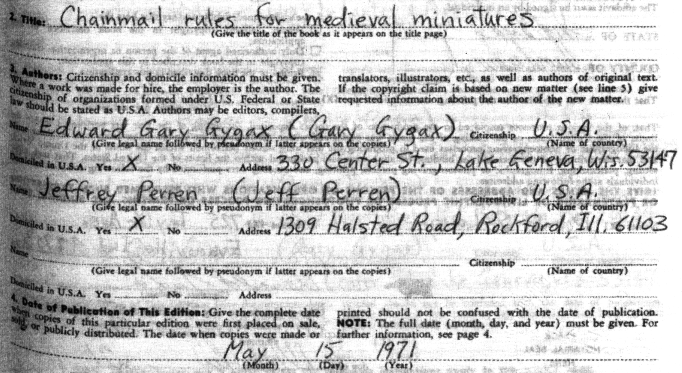 2. Title: Chainmail rules for medieval miniatures
(Give the title of the book as it appears on the title page)
3. Authors: Citizenship and domicile information must be given.
Where a work was made for hire, the employer is the author. The
citizenship of organizations formed under U.S. Federal or State
law should be stated as U.S.A. Authors may be editors, compilers,
translators, illustrators, etc., as well as authors of original text.
If the copyright claim is based on new matter (see line 5) give
requested information about the author of the new matter.
Name Edward Gary Gygax (Gary Gygax) Citizenship U.S.A.
(Give legal name followed by pseudonym if latter appears on the copies) (Name of country)
Domiciled in U.S.A. Yes X No Address 330 Center St., Lake Geneva, Wis. 53147
Name Jeffrey Perren (Jeff Perren) Citizenship U.S.A.
(Give legal name followed by pseudonym if latter appears on the copies) (Name of country)
Domiciled in U.S.A. Yes X No Address 1309 Halsted Road, Rockford, Ill. 61103
Name Citizenship
(Give legal name followed by pseudonym if latter appears on the copies) (Name of country)
Domiciled in U.S.A. Yes No Address
4. Date of Publication of This Edition: Give the complete date
when copies of this particular edition were first placed on sale,
sold, or publicly distributed. The date when copies were made or
printed should not be confused with the date of publication.
NOTE: The full date (month, day, and year) must be given. For
further information, see page 4.
May 15 1971
(Month) (Day) (Year)